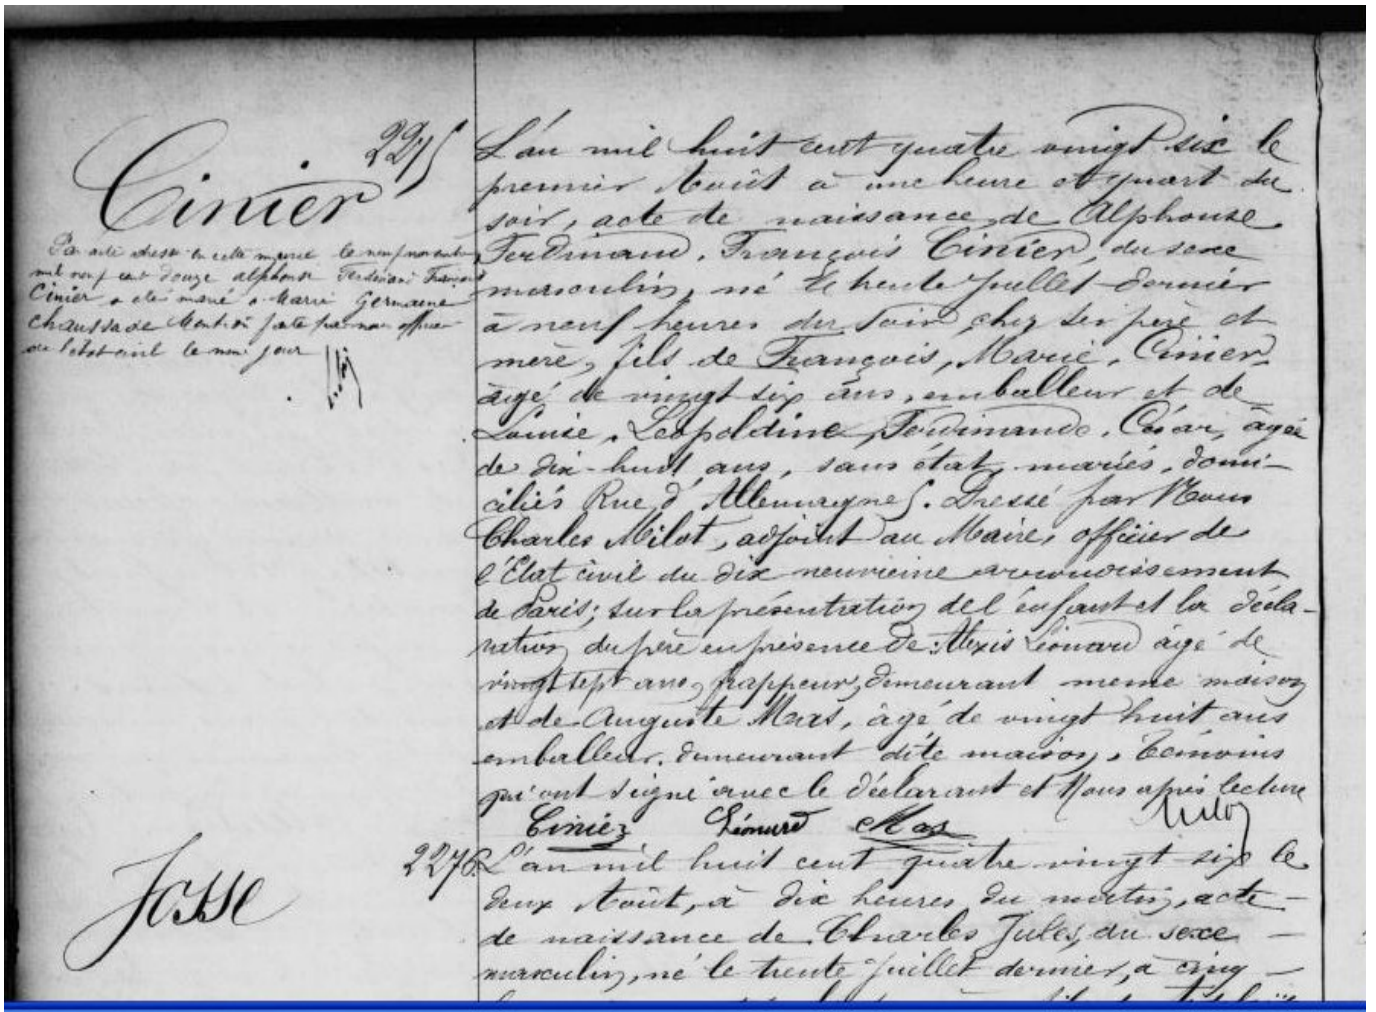 2275
Cinier
Par acte dressé en cette mairie le neuf novembre
mil neuf cent douze Alphonse Ferdinand François
Cinier a été marié à Marie Germaine
Chaussade Mention faite par nous officier
de l'état civil le même jour
L'an mil huit cent quatre vingt six le
premier Août à une heure et quart du
soir, acte de naissance de Alphonse
Ferdinand, François Cinier, du sexe
masculin, né le trente Juillet dernier
à neuf heures du soir chez ses père et
mère, fils de François, Marie, Cinier,
âgé de vingt six ans, emballeur et de
Louise, Léopoldine, Ferdinande, César, âgée
de dix-huit ans, sans état, mariés, domi-
ciliés Rue d'Allemagne 5. Dressé par Nous
Charles Milot, adjoint au Maire, officier de
l'Etat civil du dix neuvième arrondissement
de Paris; sur la présentation de l'enfant et la décla-
ration du père en présence de: Alexis Léonard âgé de
vingt sept ans, frappeur, demeurant même maison
et de Auguste Mas, âgé de vingt huit ans
emballeur, demeurant dite maison, témoins
qui ont signé avec le déclarant et Nous après lecture
Cinier Léonard Mas Milot
Josse
2276
L'an mil huit cent quatre vingt six le
deux Août, à dix heures du matin, acte
de naissance de Charles Jules, du sexe
masculin, né le trente Juillet dernier, à cinq